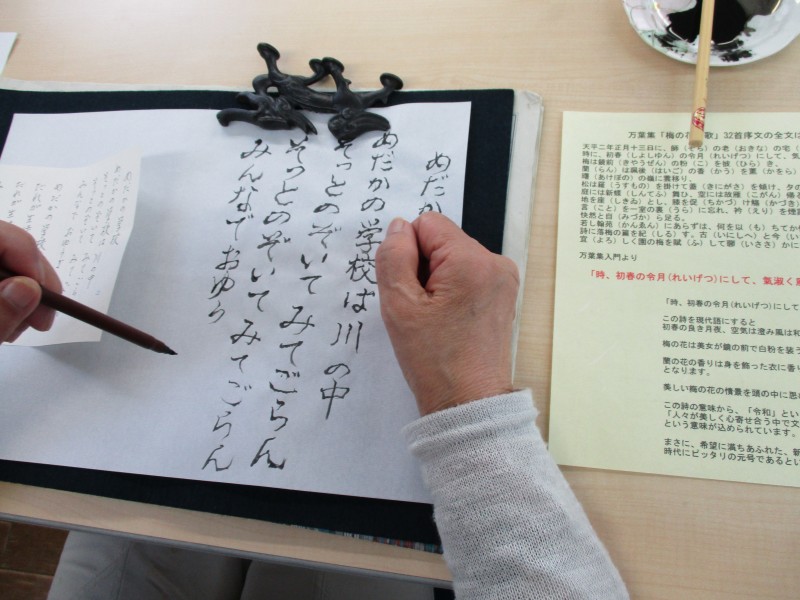 めだか
めだかの学校は川の中
そっとのぞいてみてごらん
そっとのぞいてみてごらん
みんなでおゆう
万葉集「梅の花 歌」32首序文の全文に
天平二年正月十三日に、師（そち）の老（おきな）の宅（
時に、初春（しよしゆん）の令月（れいげつ）にして、気
梅は鏡前（きやうぜん）の粉（こ）を披（ひら）き、
蘭（らん）は珮後（はいご）の香（かう）を薫（かをら）
曙（あけぼの）の嶺に雲移り、
松は羅（うすもの）を掛けて蓋（きにがさ）を傾け、夕の
庭には新蝶（しんてふ）舞ひ、空には故雁（こがん）帰る
地を座（しきゐ）とし、膝を促（ちかづ）け觴（かづき）
言（こと）を一室の裏（うら）に忘れ、衿（えり）を煙霞
快然と自（みづか）ら足る。
若し翰苑（かんゑん）にあらずは、何を以（も）ちてか
詩に落梅の篇を紀（しる）す。古（いにしへ）と今（い
宜（よろ）しく園の梅を賦（ふ）して聊（いささ）かに
万葉集入門より
「時、初春の令月（れいげつ）にして、氣淑く
「時、初春の令月（れいげつ）にして
この詩を現代語にすると
初春の良き月夜、空気は澄み風は和
梅の花は美女が鏡の前で白粉を装う
蘭の花の香りは身を飾った衣に香り
となります。
美しい梅の花の情景を頭の中に思
この詩の意味から、「令和」とい
「人々が美しく心寄せ合う中で文
という意味が込められています。
まさに、希望に満ちあふれた、新
時代にピッタリの元号であるとい